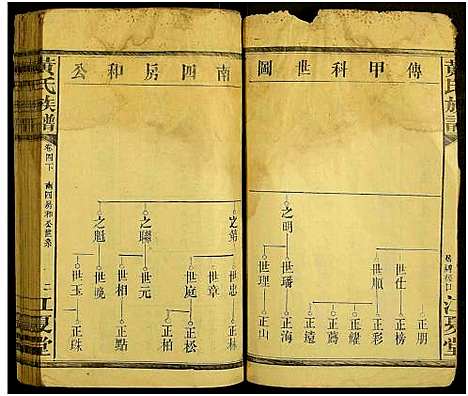 傳甲科世圖
南四房和公
黃氏族譜
江夏堂
之明
世仕
世順
世璠
世理
正朋
正榜
正彩
正耀
正蕎
正遠
正海
正山
之聯
之魁
世忠
世章
世庭
世元
世相
世晚
世玉
正林
正松
正點
正珠
黃氏族譜
卷四下
南四房和公世系
江夏堂